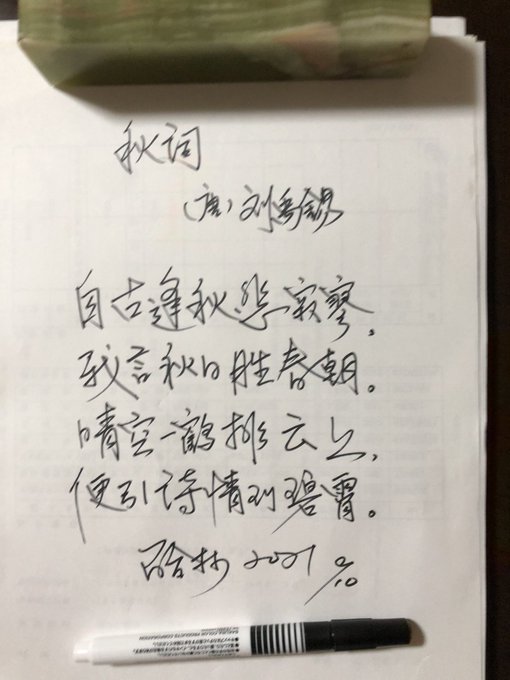 秋词
(唐)刘禹锡
自古逢秋悲寂寥,
我言秋日胜春朝。
晴空一鹤排云上,
便引诗情到碧霄。
2021 9/10
SAKURA COLOR PRODUCTS CORPORATION